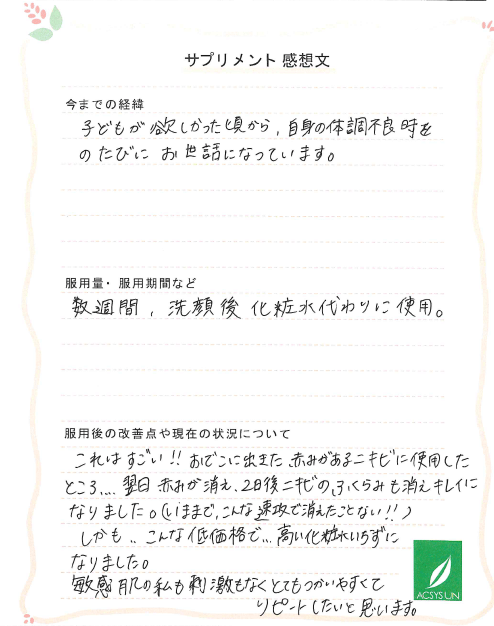 サプリメント 感想文
今までの経緯
子どもが欲しかった頃から、自身の体調不良時を
のたびに お世話になっています。
服用量・服用期間など
数週間、洗顔後 化粧水代わりに使用。
服用後の改善点や現在の状況について
これはすごい!! おでこに出きた、赤みがあるニキビに使用した
ところ.... 翌日 赤みが消え、2日後ニキビの、ふくらみも消えキレイに
なりました。(いままで、こんな速攻で消えたことない!!)
しかも.. こんな低価格で... 高い化粧水いらずに
なりました。
敏感肌の私も刺激もなくとてもつかいやすくて
リピートしたいと思います。
ACSYSUN